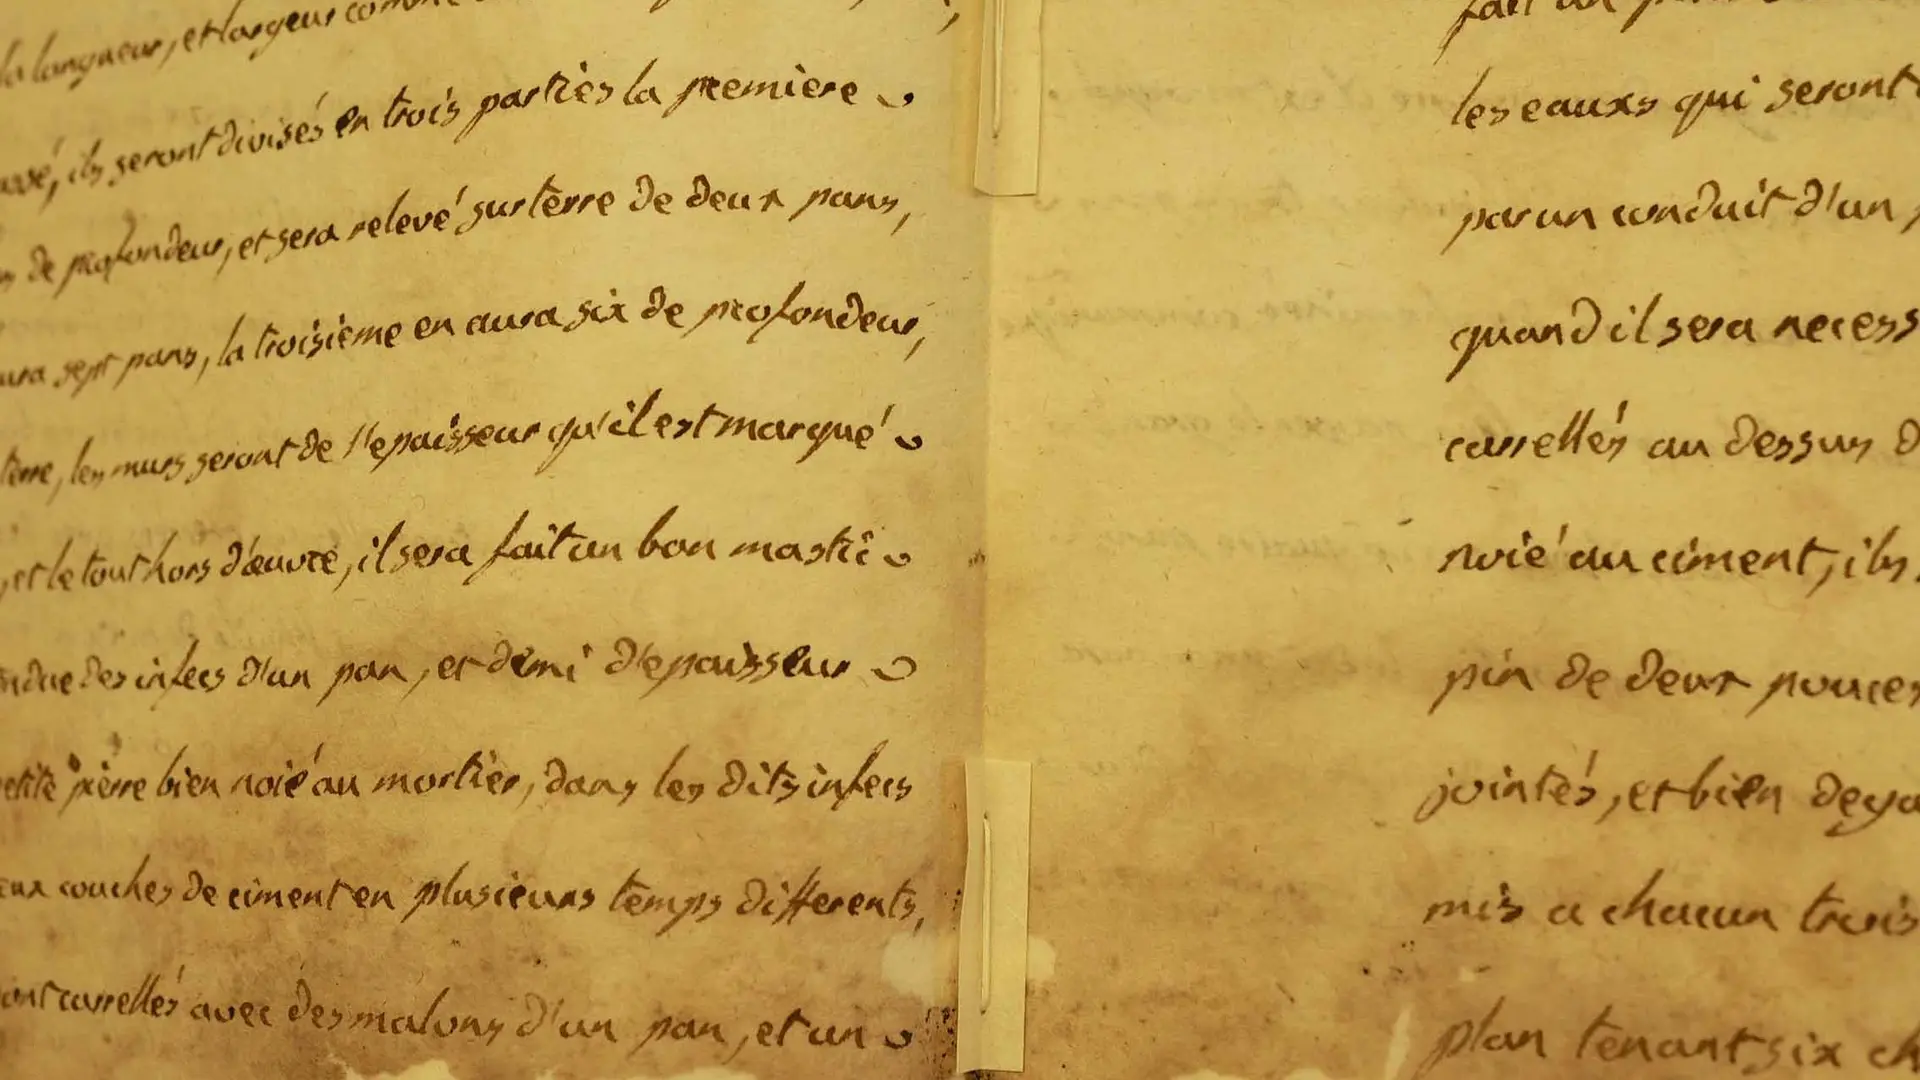 la langueur, et largeur comme
ils seront divisés en trois partiès la premiere
de profondeur, et sera relevé sur tèrre de deux pans,
aura sept pans, la troisième en aura six de profondeur,
tèrre, les murs seront de l'epaisseur qu'il est marqué
, et le tout hors d'œuvre, il sera fait un bon mastic
des infecs d'un pan, et demi d'epaisseur
petite pierre bien noié au mortièr, dans les dits infecs
eux couches de ciment en plusieurs temps differents,
ont carrellés avec des malons d'un pan, et un
fait un
les eauxs qui seront
par un conduit d'un
quand il sera necess
carrellés au dessus d
noié au ciment, ils
pin de deux pouces
jointés, et bien
mis a chacun trois
plan tenant six ch